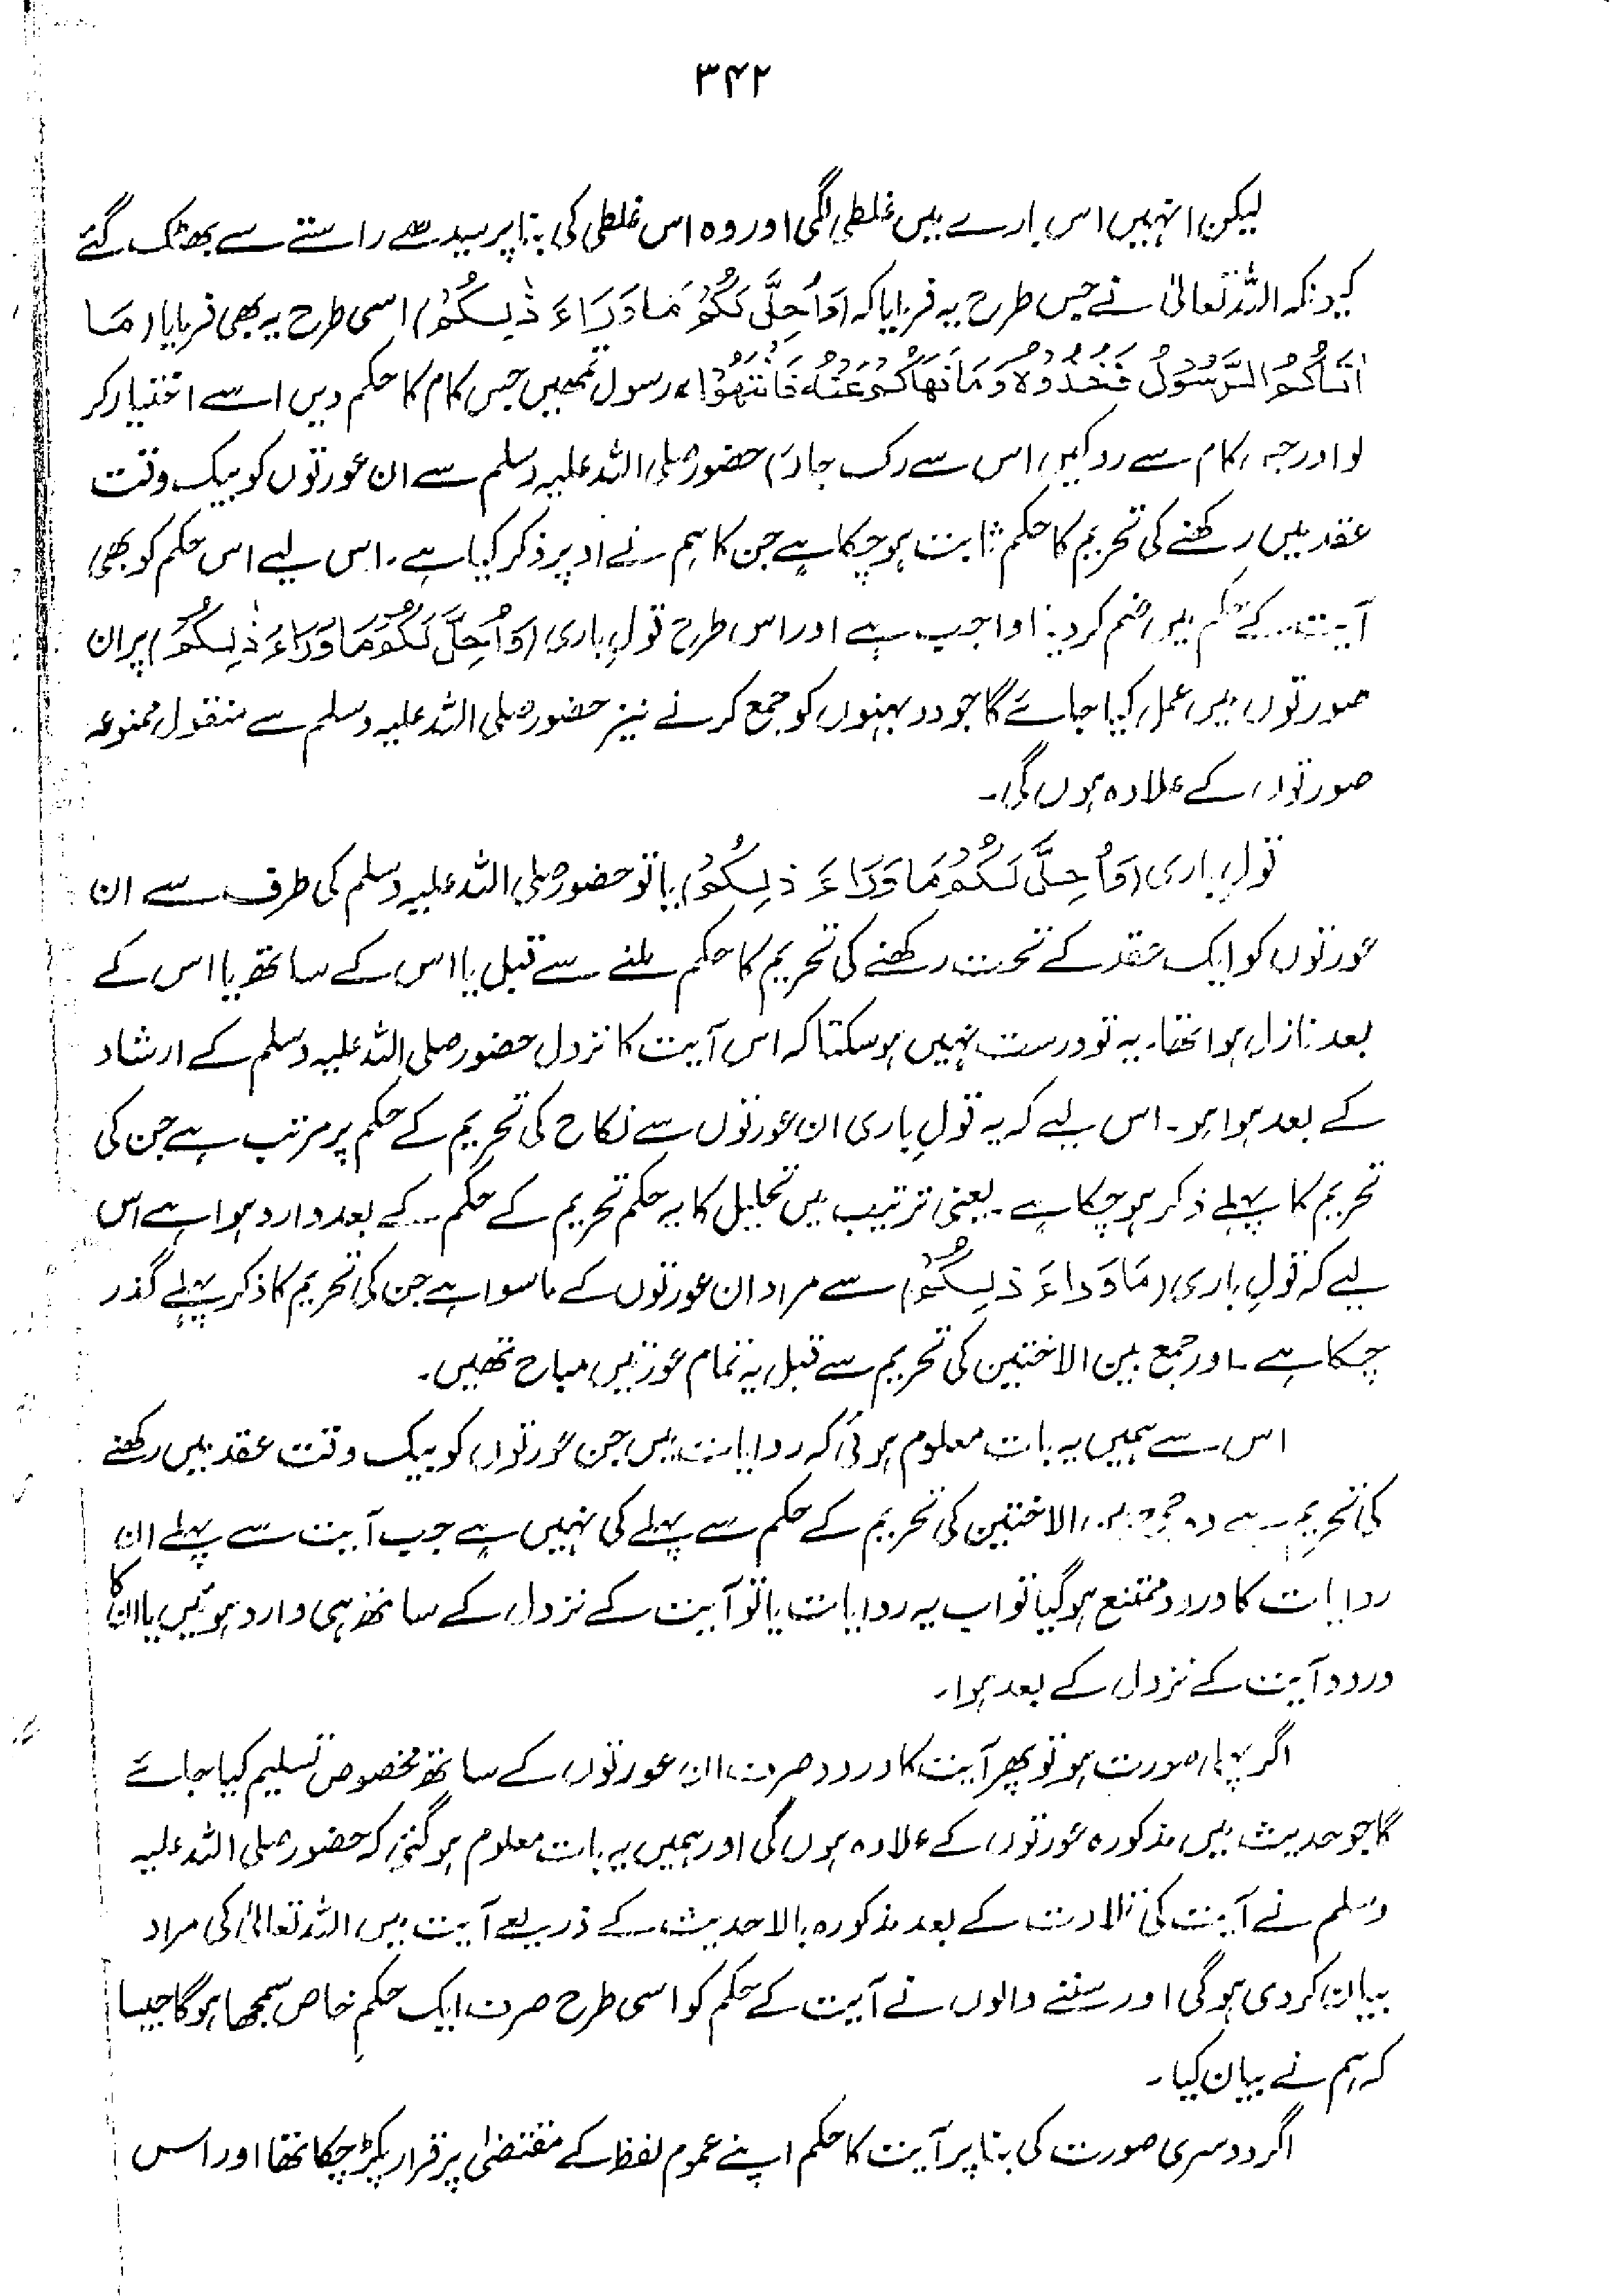 ۳۴۲
لیکن انہیں اس بارے میں غلطی لگی اور وہ اس غلطی کی بنا پر سیدھے راستے سے بھٹک گئے
کیونکہ اللہ تعالیٰ نے جس طرح یہ فرمایا کہ (وَاُحِلَّ لَكُمْ مَا وَرَاءَ ذٰلِكُمْ) اسی طرح یہ بھی فرمایا (مَا
اٰتَاكُمُ الرَّسُوْلُ فَخُذُوْهُ وَمَا نَهَاكُمْ عَنْهُ فَانْتَهُوْا، رسول تمھیں جس کام کا حکم دیں اسے اختیار کر
لو اور جس کام سے روکیں اس سے رک جاؤ) حضور صلی اللہ علیہ وسلم سے ان عورتوں کو بیک وقت
عقد میں رکھنے کی تحریم کا حکم ثابت ہو چکا ہے جن کا ہم نے اوپر ذکر کیا ہے۔ اس لیے اس حکم کو بھی
آیت کے حکم میں ضم کر دینا واجب ہے اور اس طرح قولِ باری (وَاُحِلَّ لَكُمْ مَا وَرَاءَ ذٰلِكُمْ) پر ان
صورتوں میں عمل کیا جائے گا جو دو بہنوں کو جمع کرنے نیز حضور صلی اللہ علیہ وسلم سے منقول ممنوعہ
صورتوں کے علاوہ ہوں گی۔
قولِ باری (وَاُحِلَّ لَكُمْ مَا وَرَاءَ ذٰلِكُمْ) یا تو حضور صلی اللہ علیہ وسلم کی طرف سے ان
عورتوں کو ایک عقد کے تحت رکھنے کی تحریم کا حکم ملنے سے قبل یا اس کے ساتھ یا اس کے
بعد نازل ہوا تھا۔ یہ تو درست نہیں ہو سکتا کہ اس آیت کا نزول حضور صلی اللہ علیہ وسلم کے ارشاد
کے بعد ہوا ہو۔ اس لیے کہ یہ قولِ باری ان عورتوں سے نکاح کی تحریم کے حکم پر مرتب ہے جن کی
تحریم کا پہلے ذکر ہو چکا ہے۔ یعنی ترتیب میں تحلیل کا یہ حکم تحریم کے حکم کے بعد وارد ہوا ہے اس
لیے کہ قولِ باری (مَا وَرَاءَ ذٰلِكُمْ) سے مراد ان عورتوں کے ماسوا ہے جن کی تحریم کا ذکر پہلے گذر
چکا ہے۔ اور جمع بین الاختین کی تحریم سے قبل یہ تمام عورتیں مباح تھیں۔
اس سے ہمیں یہ بات معلوم ہوئی کہ روایات میں جن عورتوں کو بیک وقت عقد میں رکھنے
کی تحریم ہے وہ جمع بین الاختین کی تحریم کے حکم سے پہلے کی نہیں ہے جب آیت سے پہلے ان
روایات کا ورود ممتنع ہو گیا تو اب یہ روایات یا تو آیت کے نزول کے ساتھ ہی وارد ہوئیں یا ان کا
ورود آیت کے نزول کے بعد ہوا۔
اگر پہلی صورت ہو تو پھر آیت کا ورود صرف ان عورتوں کے ساتھ مخصوص تسلیم کیا جائے
گا جو حدیث میں مذکورہ عورتوں کے علاوہ ہوں گی اور ہمیں یہ بات معلوم ہو گئی کہ حضور صلی اللہ علیہ
وسلم نے آیت کی تلاوت کے بعد مذکورہ بالا حدیث کے ذریعے آیت میں اللہ تعالیٰ کی مراد
بیان کر دی ہو گی اور سننے والوں نے آیت کے حکم کو اسی طرح صرف ایک حکمِ خاص سمجھا ہوگا جیسا
کہ ہم نے بیان کیا۔
اگر دوسری صورت کی بنا پر آیت کا حکم اپنے عموم لفظ کے مقتضیٰ پر قرار پکڑ چکا تھا اور اس